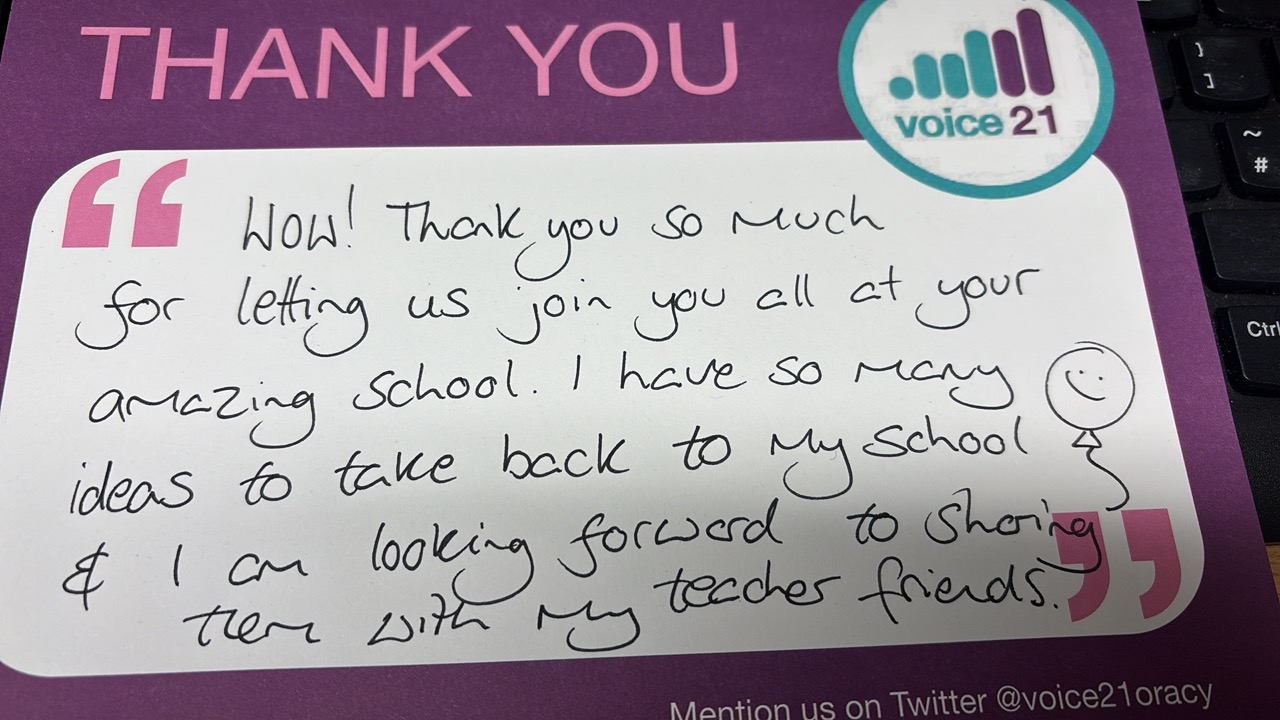 THANK YOU
voice 21
“ Wow! Thank you so much
for letting us join you all at your
amazing school. I have so many
ideas to take back to my school
& I am looking forward to sharing
them with my teacher friends. ”
Mention us on Twitter @voice21oracy
}
]
~
#
Ctrl